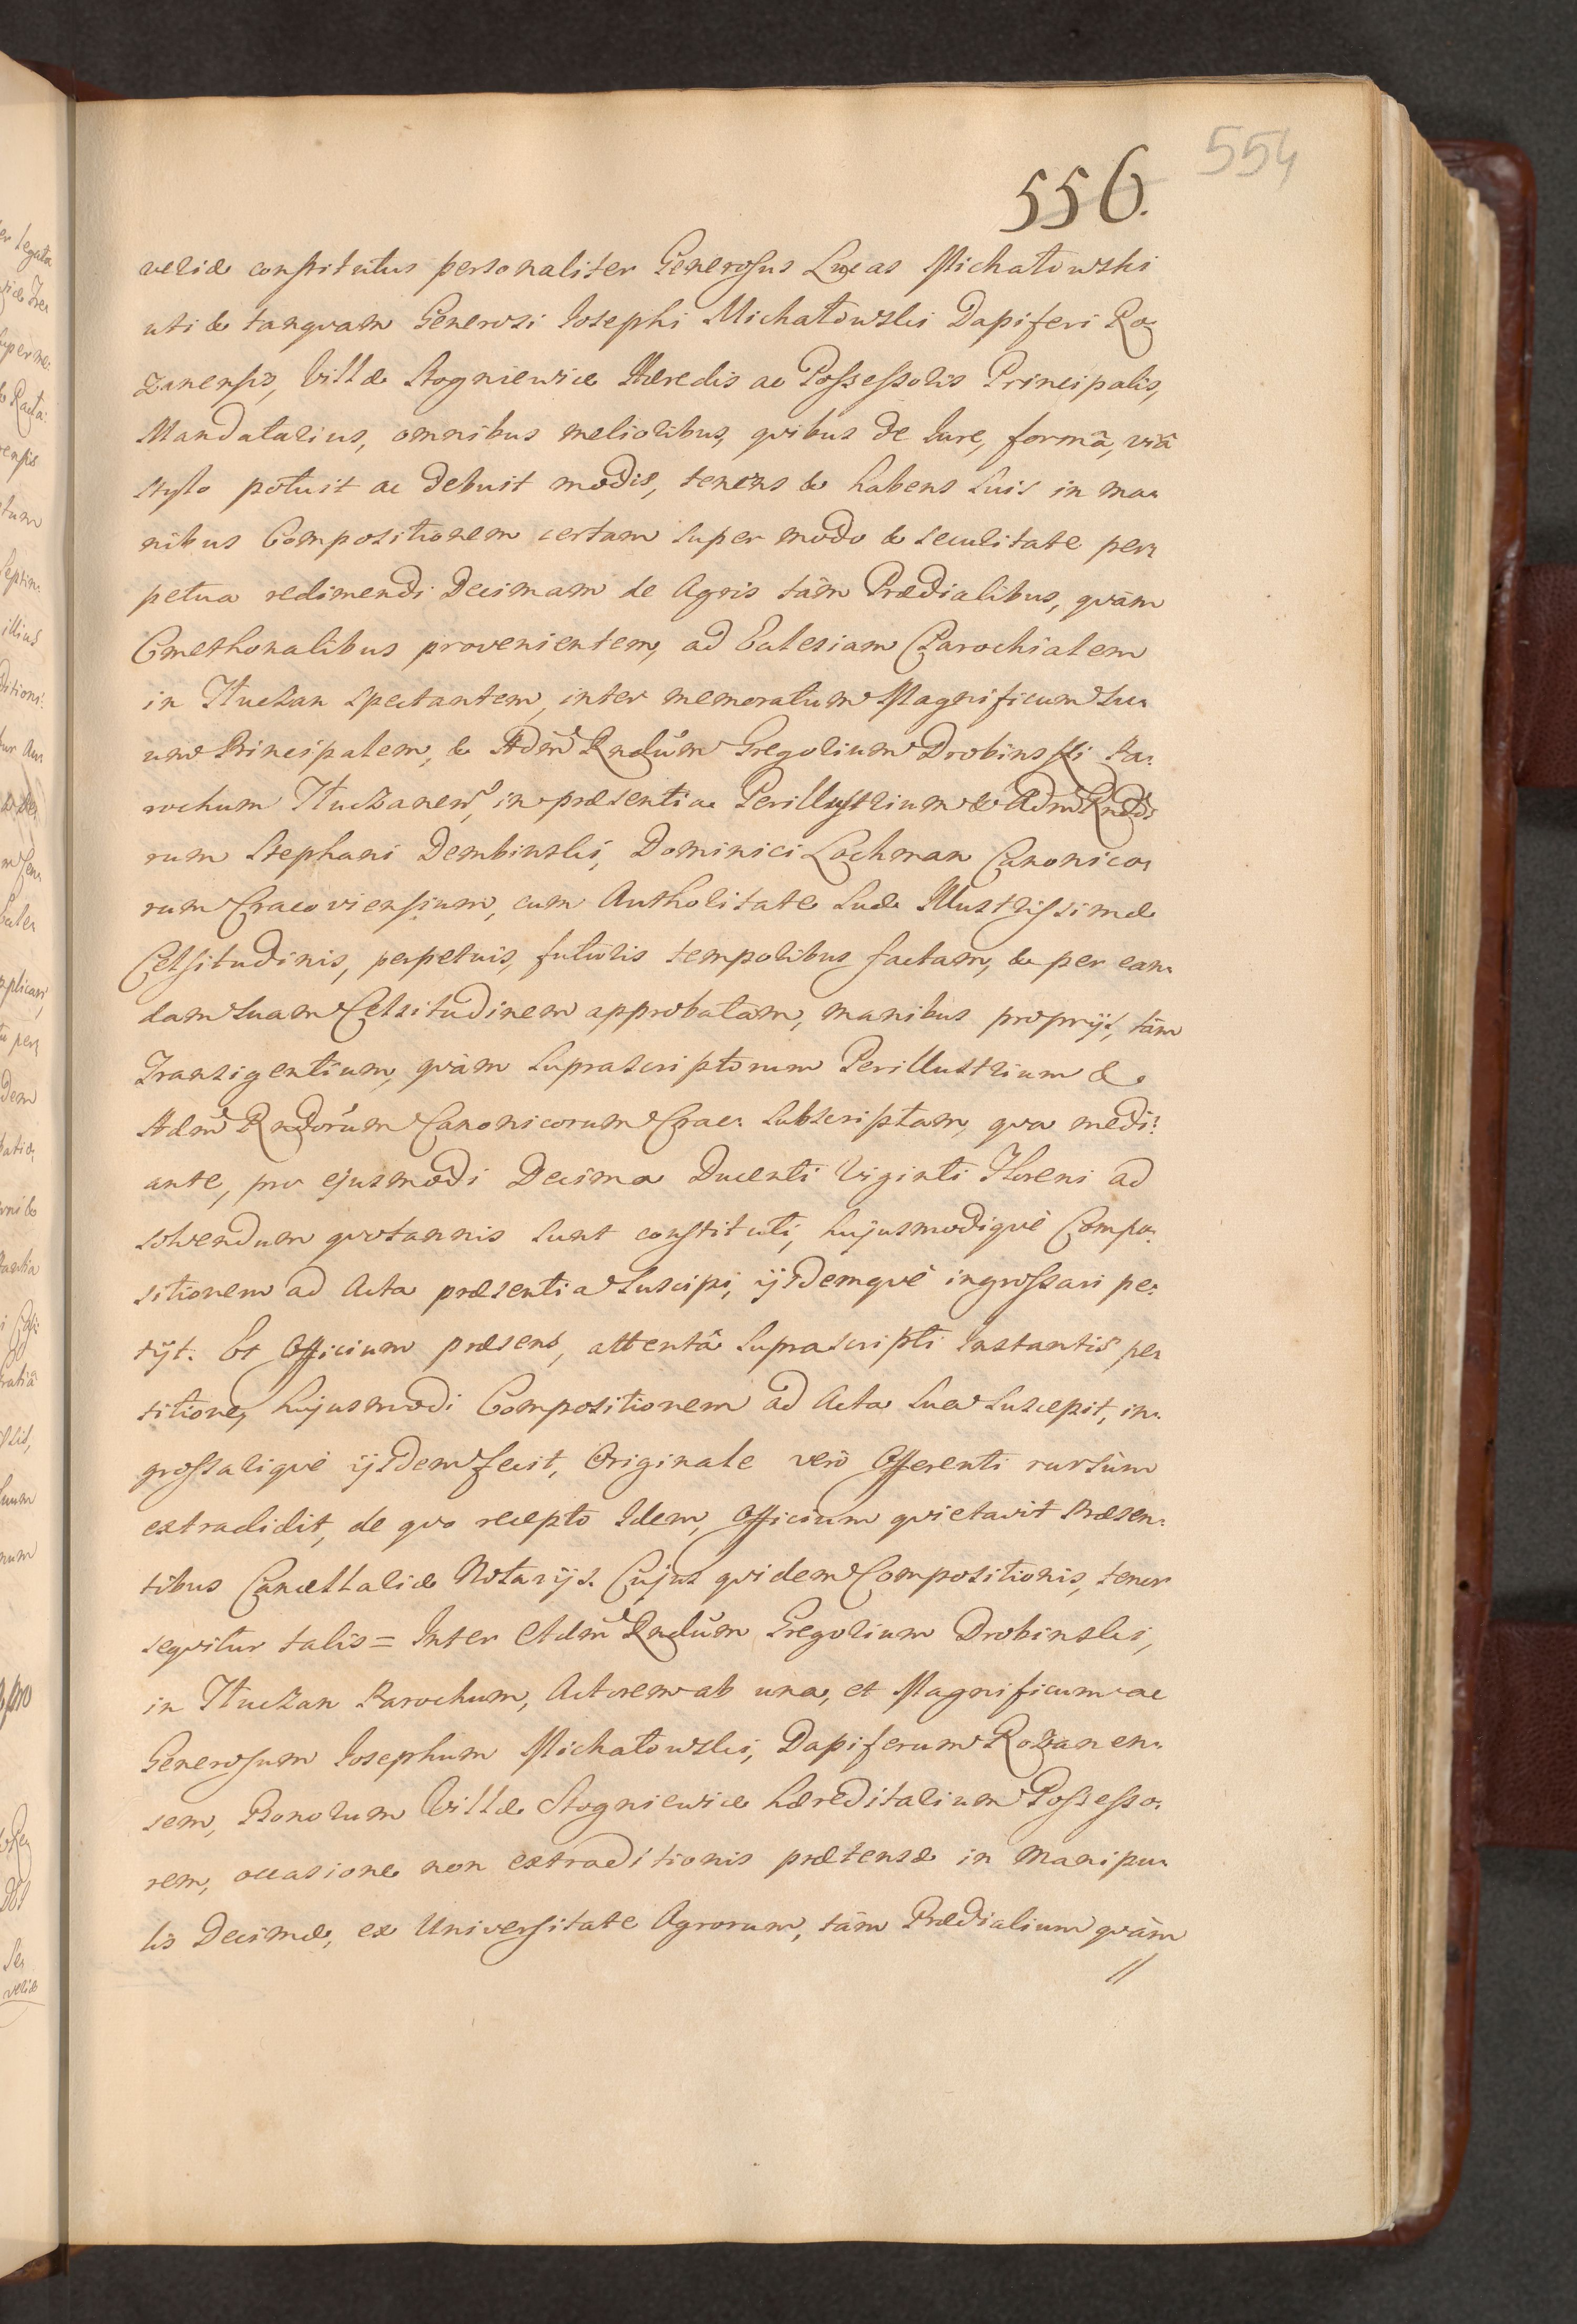 554
556.
veliæ constitutus personaliter Generosus Lucas Michałowski
uti & tanquam Generosi Iosephi Michałowski Dapiferi Ro„
zanensis, Villæ Stogniewice Hæredis ac Possessoris Principalis,
Mandatarius, omnibus melioribus, quibus de Iure, formâ, viâ
stylo potuit ac debuit modis, tenens & habens suis in ma„
nibus Compositionem certam super modo & securitate per„
petua redimendi Decimam de Agris tàm Prædialibus, quàm
Cmethonalibus provenientem, ad Ecclesiam Parochialem
in Tłuczan spectantem, inter memoratum Magnificum Su„
um Principalem, & Adm̃ Rndũm Gregorium Drobinski Pa„
rochum Tłuczanen̄, in præsentia Perillustrium & Adm̃ Rndo„
rum Stephani Dembinski, Dominici Lochman Canonico„
rum Cracoviensium, cum Authoritate Suæ Illustrissimæ
Celsitudinis, perpetuis, futuris temporibus factam, & per ean„
dam Suam Celsitudinem approbatam, manibus proprijs, tàm
Transigentium, quàm suprascriptorum Perillustrium &
Adm̃ Rndorũm Canonicorum Crac: subscriptam, qva medi„
ante, pro ejusmodi Decima Ducenti Viginti Floreni ad
solvendum quotannis sunt constituti, hujusmodiquè Compo„
sitionem ad Acta præsentia suscipi, ijsdemquè ingrossari pe„
tijt. Et Officium præsens, attentâ suprascripti Instantis pe„
titione, hujusmodi Compositionem ad Acta sua suscepit, in„
grossariquè ijsdem fecit, Originale verò Offerenti rursùm
extradidit, de quo recepto Idem, Officium quietavit Præsen„
tibus Cancellariæ Notarijs. Cujus quidem Compositionis, tenor
sequitur talis = Inter Adm̃ Rndũm Gregorium Drobinski,
in Tłuczan Parochum, Actorem ab una, et Magnificum ac
Generosum Iosephum Michałowski, Dapiferum Rozanen„
sem, Bonorum Villæ Stogniewice hæreditarium Possesso„
rem, occasione non extraditionis prætensæ in Manipu„
lis Decimæ, ex Universitate Agrorum, tàm Prædialium quàm
//